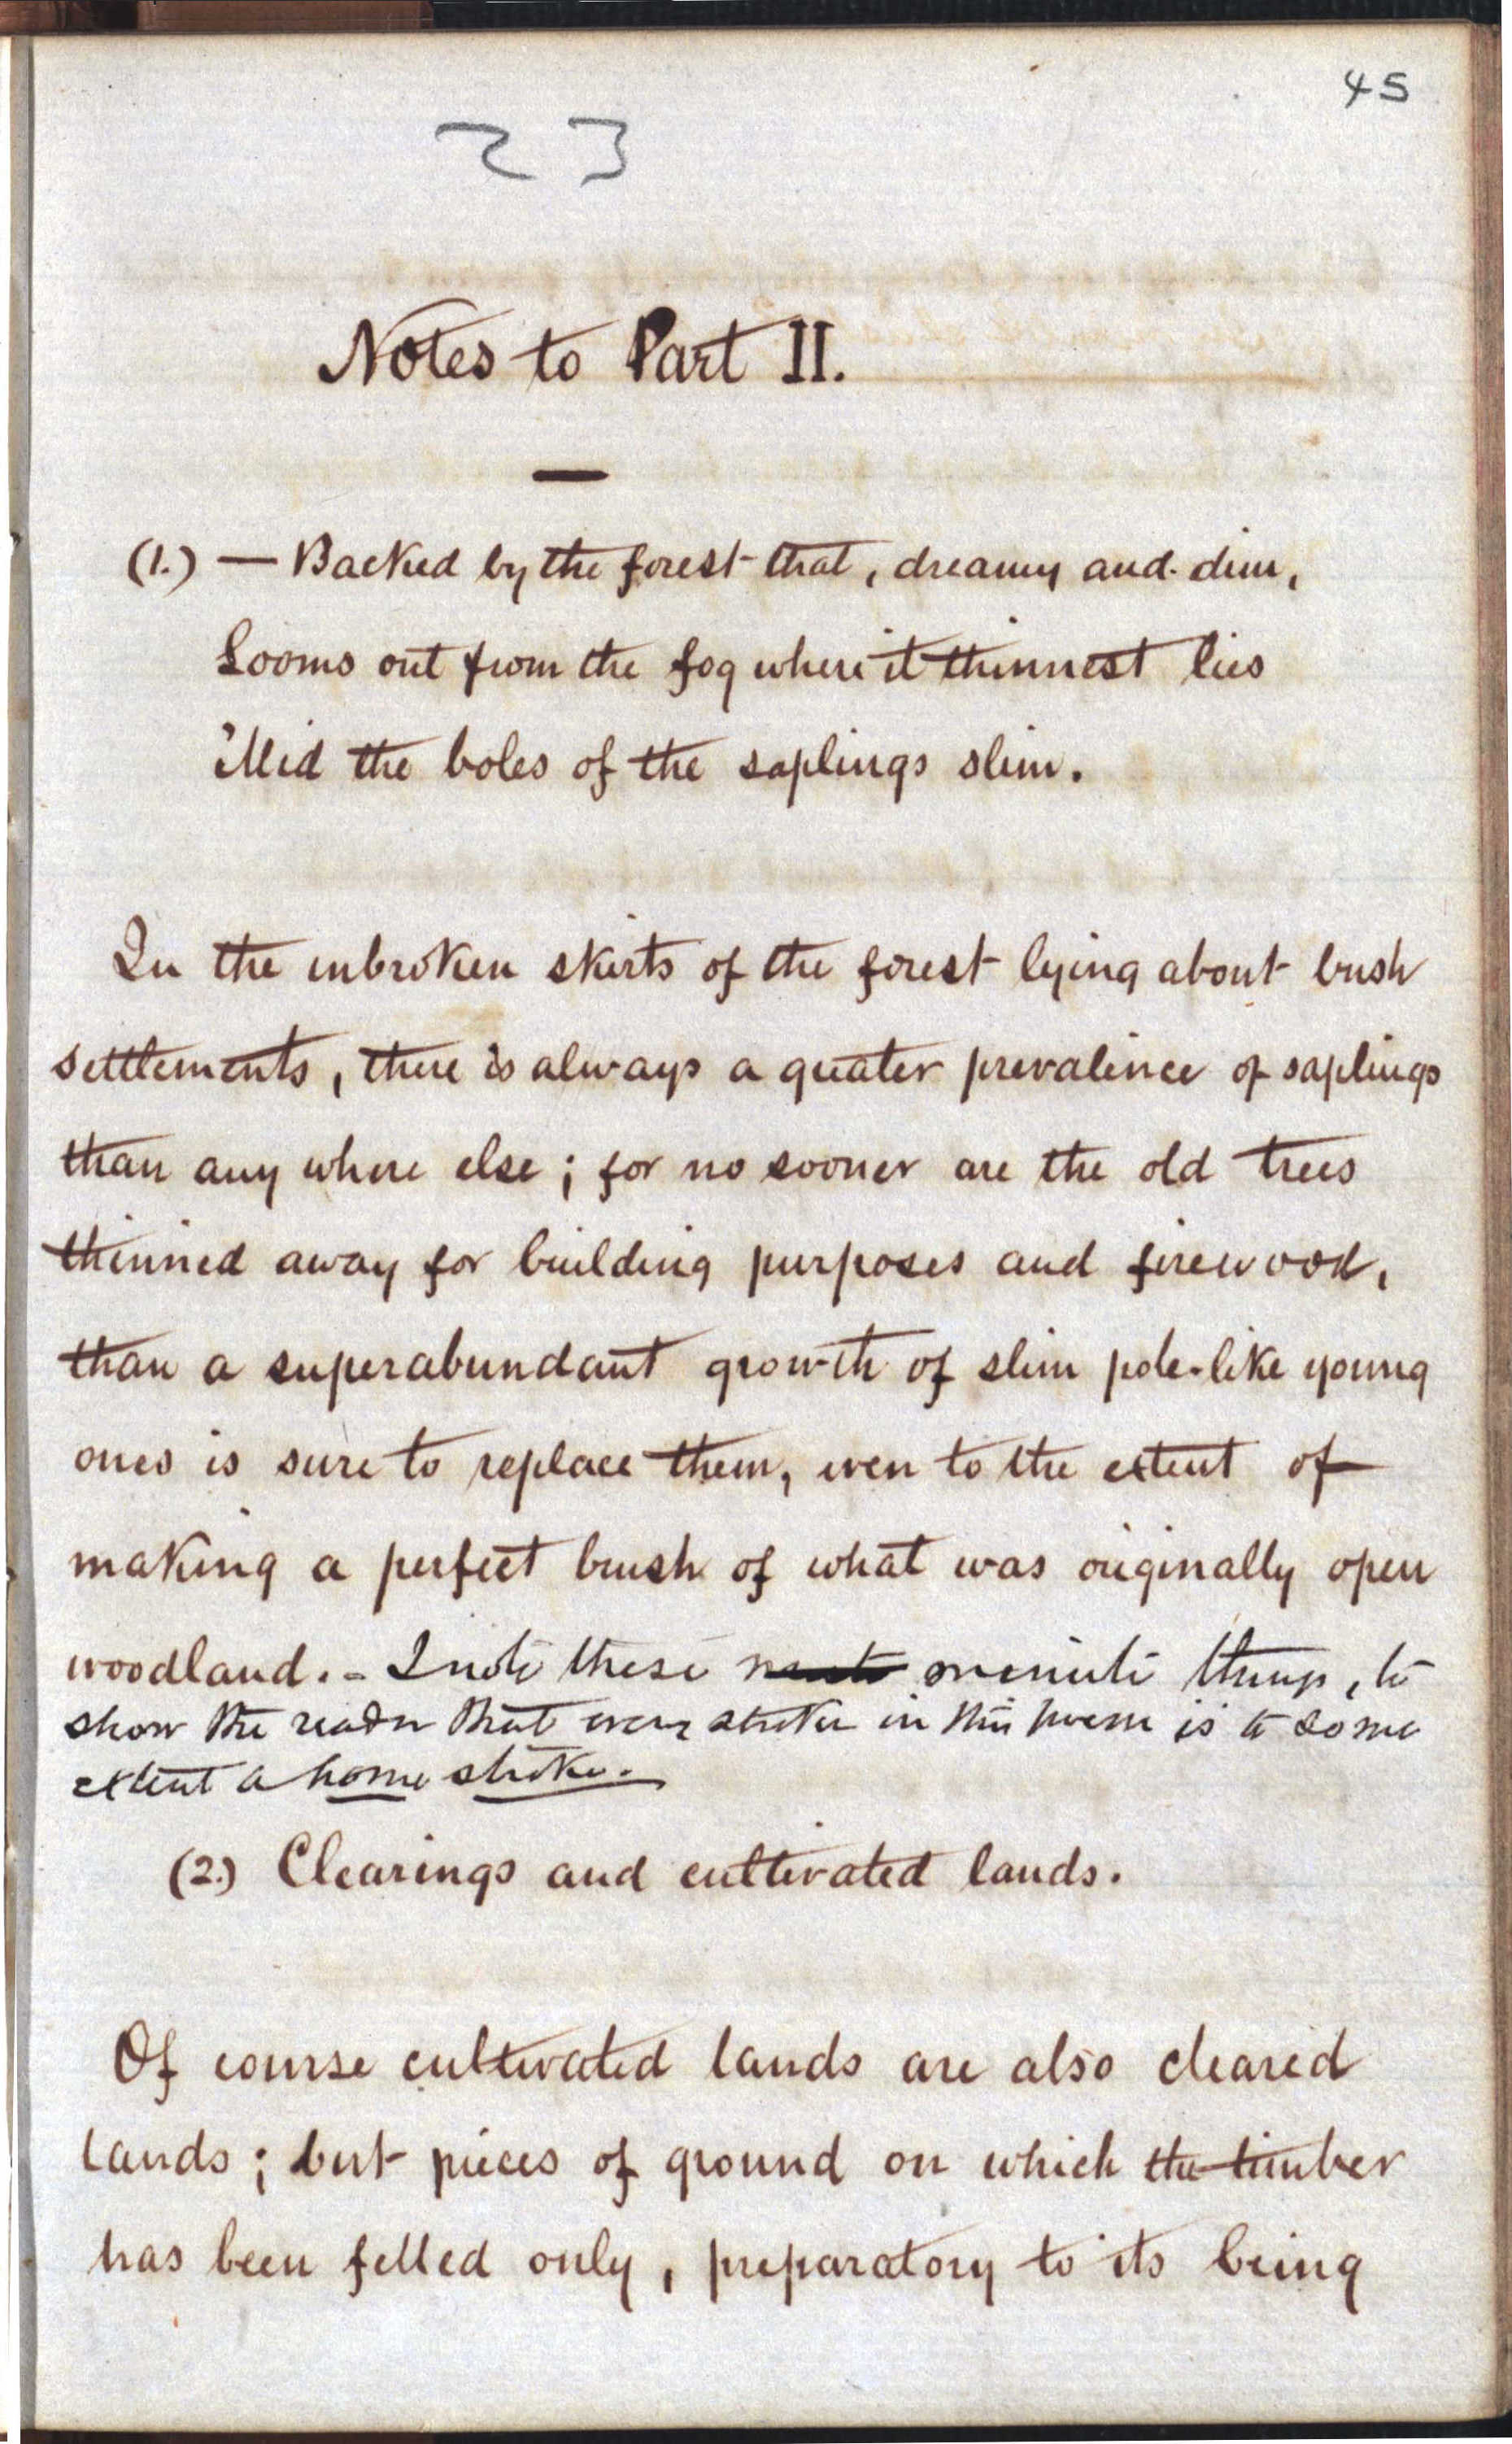 45
23
Notes to Part II.
(1.) — Backed by the forest that, dreamy and dim,
Looms out from the fog where it thinnest lies
'Mid the boles of the saplings slim.
In the unbroken skirts of the forest lying about bush
settlements, there is always a greater prevalence of saplings
than any where else; for no sooner are the old trees
thinned away for building purposes and firewood,
than a superabundant growth of slim pole-like young
ones is sure to replace them, even to the extent of
making a perfect brush of what was originally open
woodland. - I note these minute things, to
show the reader that every stroke in this poem is to some
extent a home stroke.
(2.) Clearings and cultivated lands.
Of course cultivated lands are also cleared
lands; but pieces of ground on which the timber
has been felled only, preparatory to its being